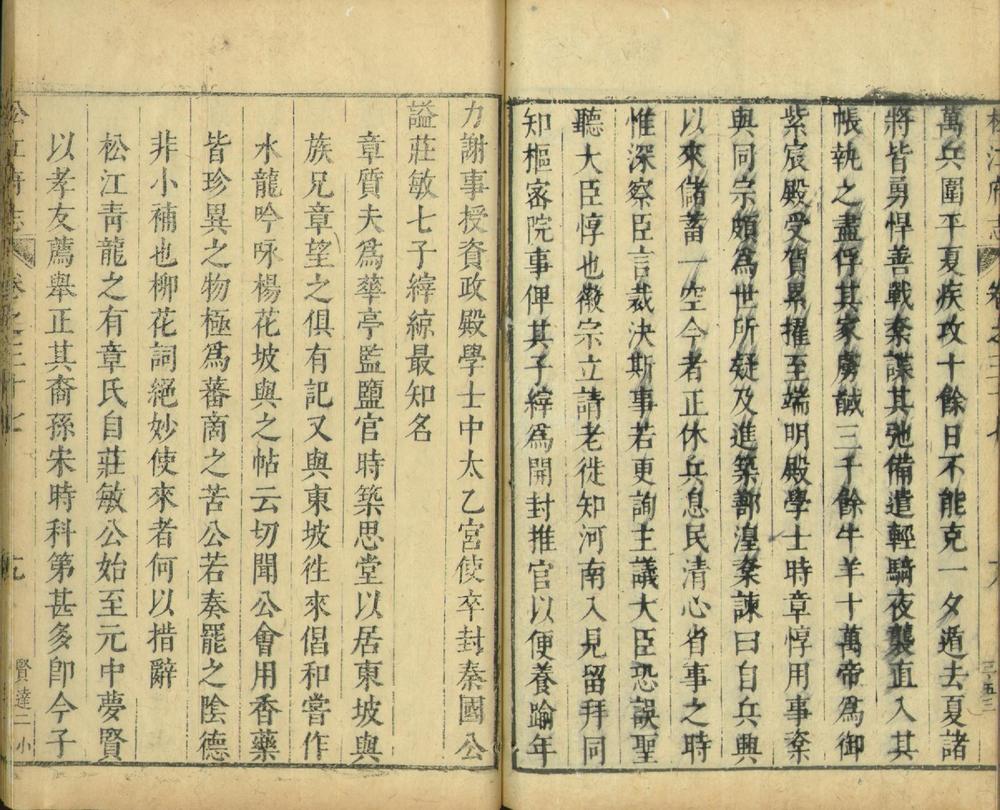 萬兵圍平夏疾攻十餘日不能克一夕遁去夏諸
將皆勇悍善戰楶諜其弛備遣輕騎夜襲直入其
帳執之盡俘其家虜馘三千餘牛羊十萬帝爲御
紫宸殿受賀累擢至端明殿學士時章惇用事楶
與同宗頗爲世所疑及進築鄯湟楶諫曰自兵興
以來儲蓄一空今者正休兵息民清心省事之時
惟深察臣言裁決斯事若更詢主議大臣恐誤聖
聽大臣惇也徽宗立請老徙知河南入見留拜同
知樞密院事俾其子縡爲開封推官以便養踰年
力謝事授資政殿學士中太乙宮使卒封秦國公
謚莊敏七子縡綜最知名
章質夫爲華亭監鹽官時築思堂以居東坡與
族兄章望之俱有記又與東坡徃來倡和嘗作
水龍吟咏楊花坡與之帖云切聞公會用香藥
皆珍異之物極爲蕃商之苦公若奏罷之陰德
非小補也柳花詞絕妙使來者何以措辭
松江靑龍之有章氏自莊敏公始至元中夢賢
以孝友薦舉正其裔孫宋時科第甚多卽今子
松江府志 卷之三十七 十九 賢達二 小